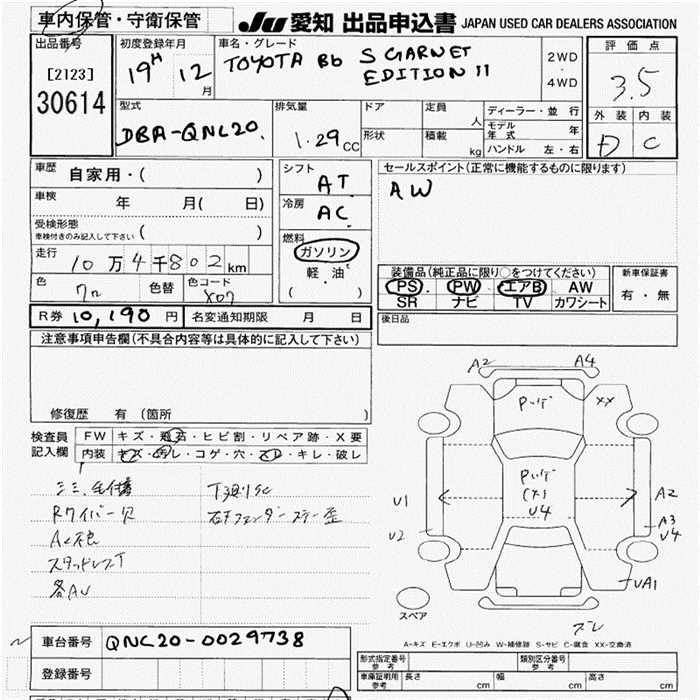 車内保管・守衛保管
JU 愛知 出品申込書 JAPAN USED CAR DEALERS ASSOCIATION
出品番号
[2123]
30614
初度登録年月
19H 12月
車名・グレード
TOYOTA Bb S GARNET EDITION II
2WD
・
4WD
評価点
3.5
外装 内装
D C
型式
DBA-QNC20.
排気量
1.29cc
ドア
形状
定員
人
積載
kg
ディーラー・並行
モデル年式 年
ハンドル 左・右
車歴
自家用・( )
車検
年 月( 日)
受検形態
車検付きのみ記入して下さい ( )
走行
10万4千802km
色
クロ
色替
色コード
X07
シフト
AT
冷房
AC
燃料
ガソリン
軽油
( )
セールスポイント(正常に機能するものに限ります)
AW
装備品(純正品に限り○をつけてください)
PS PW エアB AW
SR ナビ TV カワシート
新車保証書
有・無
R券 10,190円 名変通知期限 月 日
後日品
注意事項申告欄(不具合内容等は具体的に記入して下さい)
修復歴 有 (箇所 )
検査員
記入欄
FW キズ・飛石・ヒビ割・リペア跡・X要
内装 キズ・汚レ・コゲ・穴・スレ・キレ・破レ
Rワイパー欠
スタッドレスT
各AU
A2 A4
XX
U4
U1
U2
A2
A3
U4
UA1
スペア
ズレ
A-キズ E-エクボ U-凹み W-補修跡 S-サビ C-腐食 XX-交換済
車台番号 QNC20-0029738
登録番号
形式指定番号
参考
類別区分番号
参考
車庫証明用
参考
長さ cm 幅 cm 高さ cm